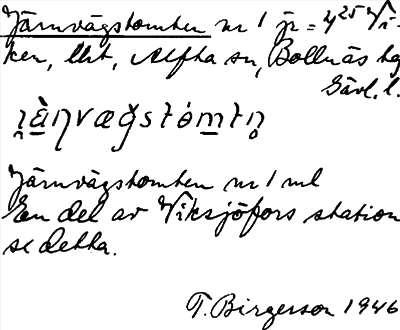 Järnvägstomten nr 1 jr = 4²⁵ Vi-
ken, lht, Alfta sn, Bollnäs hg
Gävl. l.
Järnvägstomten nr 1 ml
En del av Viksjöfors station
se detta.
T. Birgerson 1946